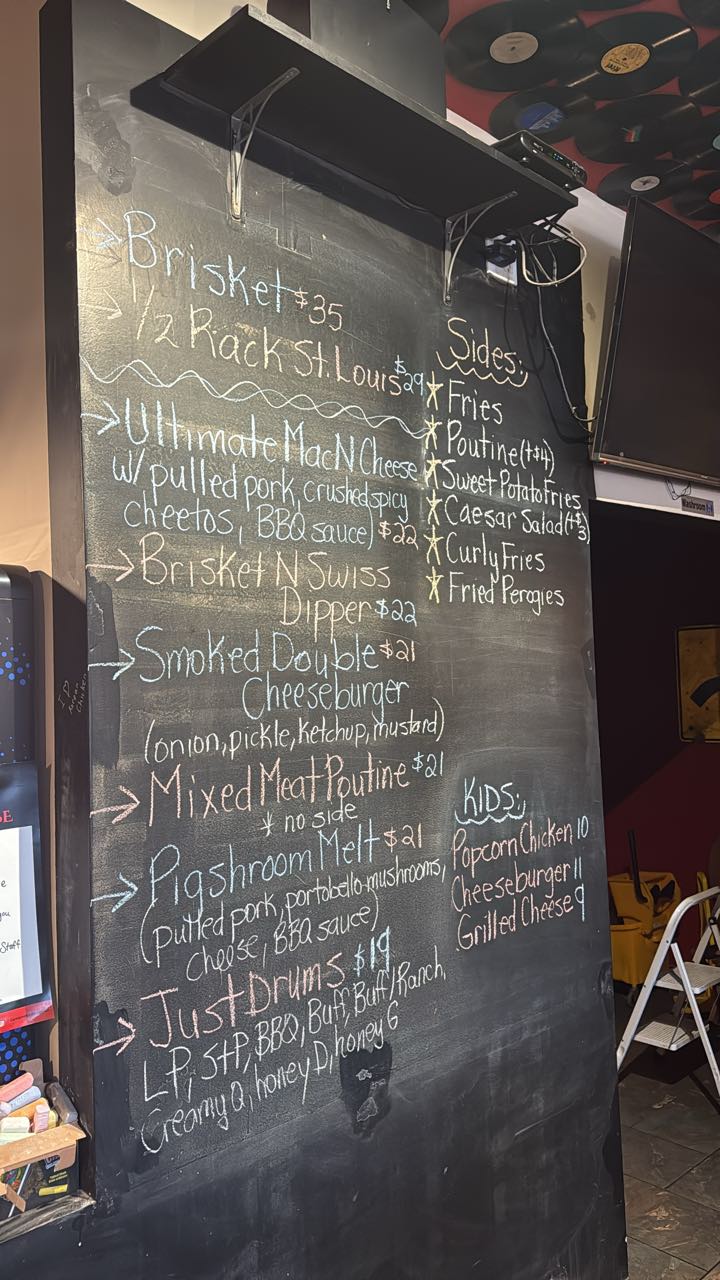 Brisket $35
1/2 Rack St. Louis $29
Ultimate Mac N Cheese
w/ pulled pork, crushed spicy
cheetos, BBQ sauce) $22
Brisket N Swiss
Dipper $22
Smoked Double $21
Cheeseburger
(onion, pickle, ketchup, mustard)
Mixed Meat Poutine $21
* no side
Pigshroom Melt $21
(pulled pork, portobello mushrooms,
cheese, BBQ sauce)
Just Drums $19
LP, S+P, BBQ, Buff, Buff/Ranch,
Creamy Q, honey D, honey G
Sides:
Fries
Poutine (+$4)
Sweet Potato Fries
Caesar Salad (+$3)
Curly Fries
Fried Perogies
KIDS:
Popcorn Chicken 10
Cheeseburger 11
Grilled Cheese 9
Washroom
you
Staff